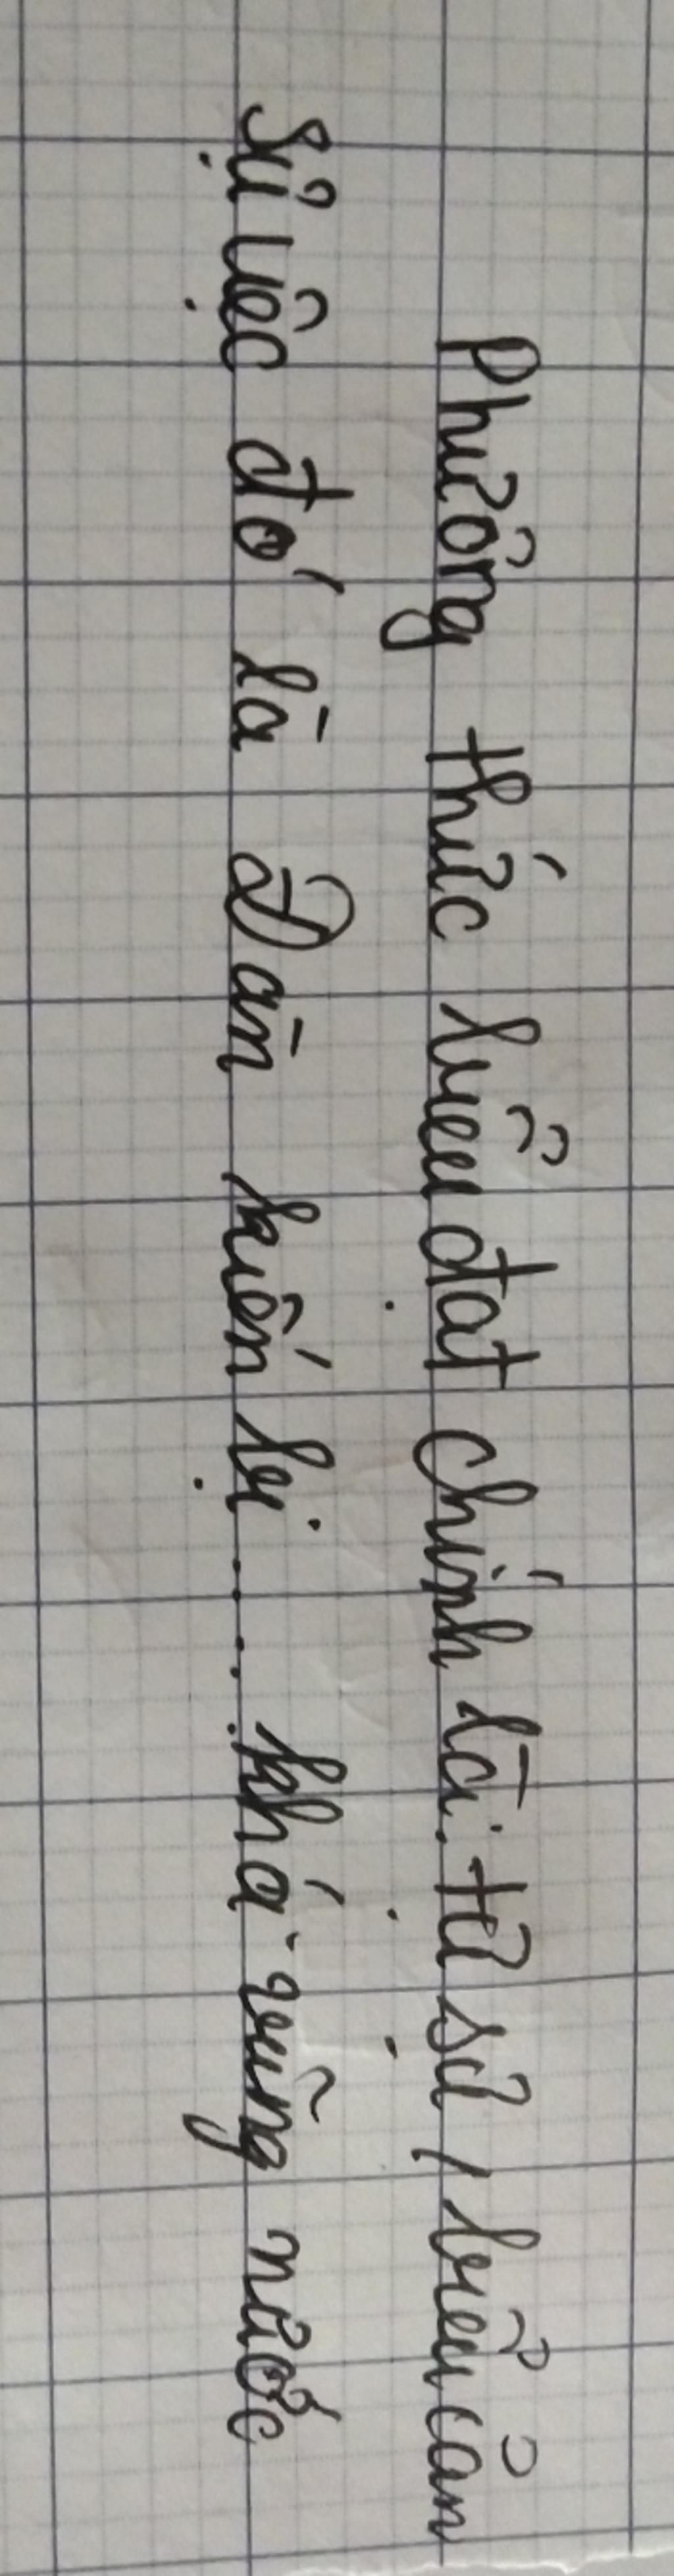 Phương thức biểu đạt chính là: tự sự, biểu cảm
Sự việc đó là Đàn kiến bị ..... khá vững nước